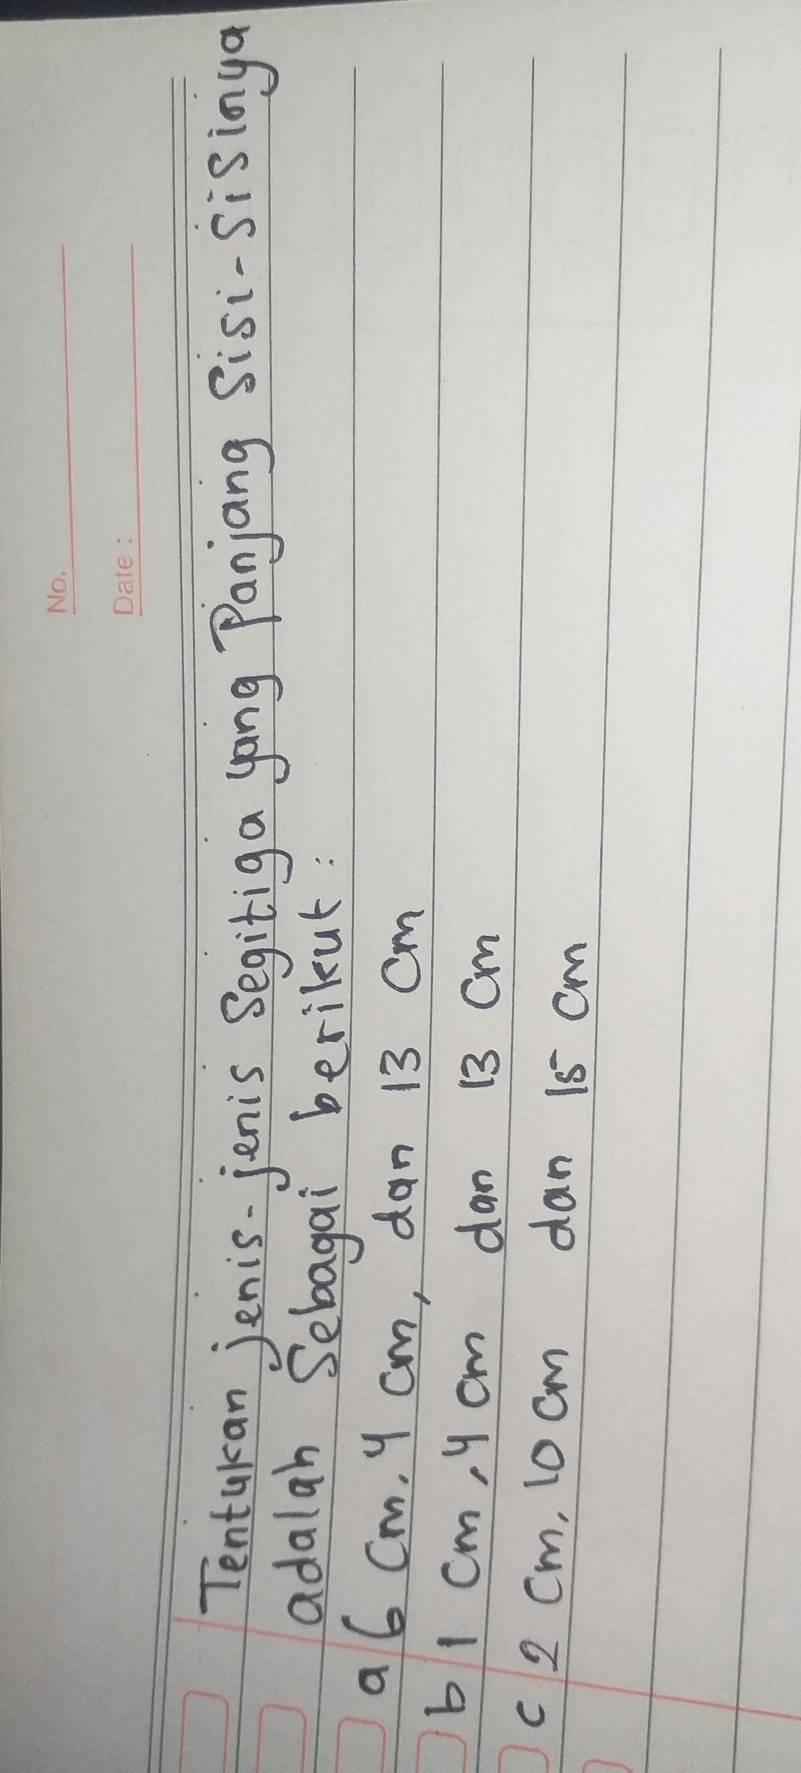 No.
Date :
Tentukan jenis-jenis Segitiga yang Panjang Sisi-Sisinya
adalah Sebagai berikut:
a 6 Cm, 4 cm, dan 13 Cm
b 1 Cm, 4 cm dan 13 Cm
c 2 Cm, 10 cm dan 15 cm